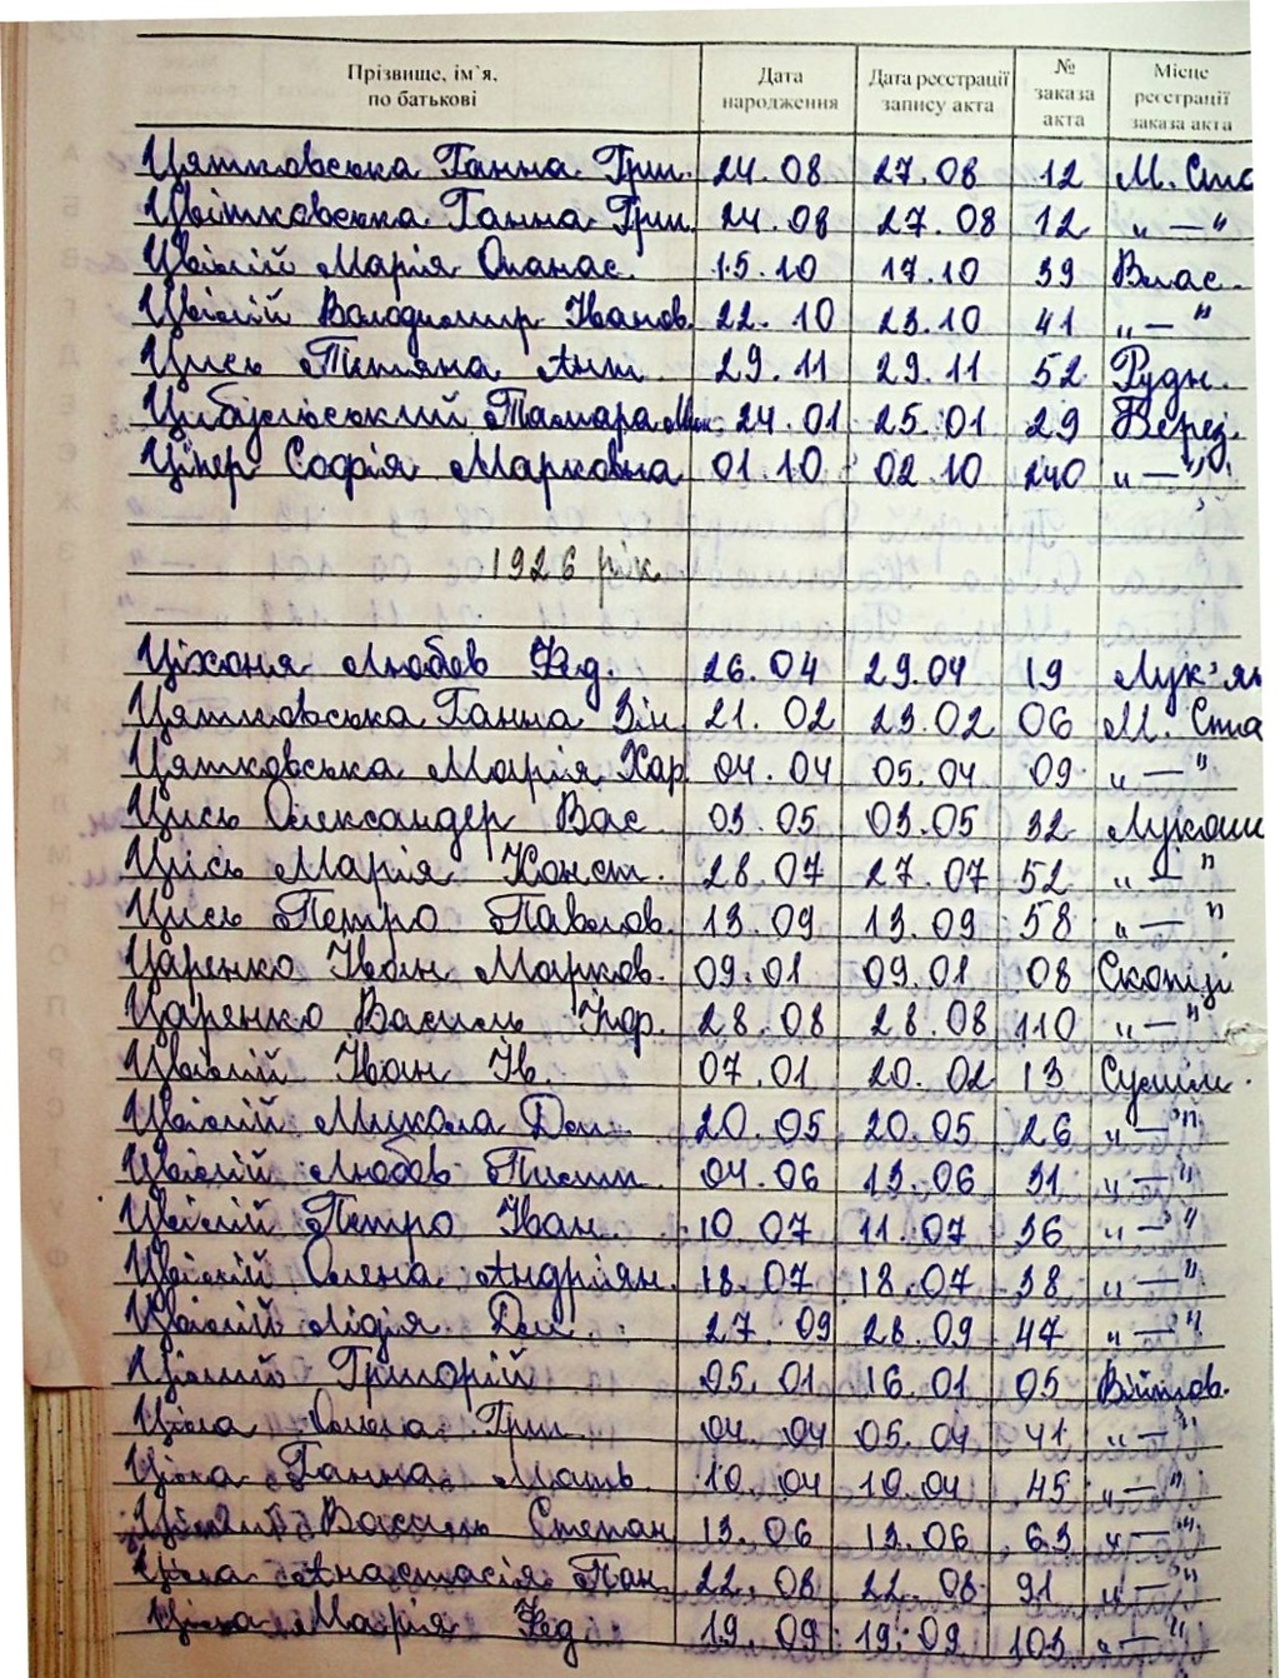 Прізвище, ім`я, по батькові Дата народження Дата реєстрації запису акта № заказа акта Місце реєстрації заказа акта
Цятковська Ганна Гри. 24.08 27.08 12 М. Ста
Цвітковська Ганна Гри. 24.08 27.08 12 „—"
Цвілій Марія Опанас. 15.10 17.10 39 Влас.
Цвілій Володимир Іванов. 22.10 23.10 41 „—"
Цись Тетяна Ант. 29.11 29.11 52 Рудн.
Тамара 24.01 25.01 29 Берез.
Ціпер Софія Марковна 01.10 02.10 240 „—"
1926 рік
Ціхоня Любов Фед. 26.04 29.04 19 Лук'ян
Цятковська Ганна Зін. 21.02 23.02 06 М. Ста
Цятковська Марія Хар. 04.04 05.04 09 „—"
Цись Олександер Вас 03.05 03.05 32 Лукаш
Цись Марія Конст. 28.07 27.07 52 „—"
Цись Петро Павлов. 13.09 13.09 58 „—"
Царенко Іван Марков. 09.01 09.01 08 Скопці
Царенко Василь 28.08 28.08 110 „—"
Цвілій Іван Ів. 07.01 20.02 13
Цвілій Микола 20.05 20.05 26 „—"
Цвілій Любов 04.06 13.06 31 „—"
Цвілій Петро Іван. 10.07 11.07 36 „—"
Цвілій Олена Андріян. 18.07 18.07 38 „—"
Цвілій Лідія 27.09 28.09 47 „—"
Цілий Григорій 05.01 16.01 05 Війтов.
Ціла Ольга Гри. 04.04 05.04 41 „—"
Ціла Ганна 10.04 10.04 45 „—"
Василь Степан. 13.06 13.06 63 „—"
Ціла Анастасія Пан. 22.08 22.08 91 „—"
Ціла Марія Фед. 19.09 19.09 103 „—"